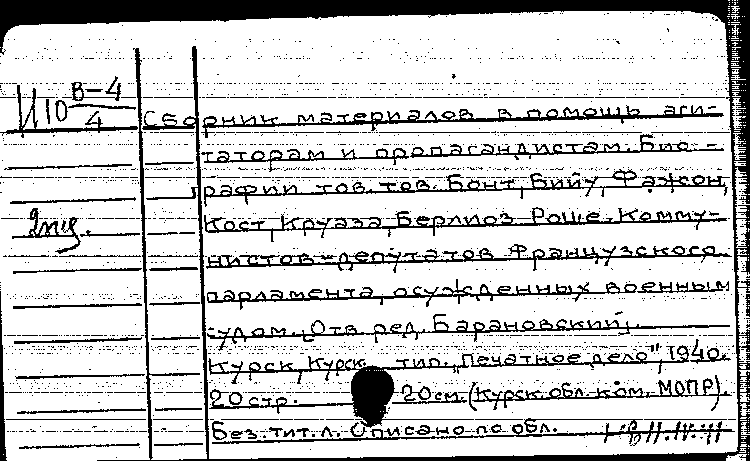 И10 В-4/4
Сборник материалов в помощь аги-
таторам и пропагандистам. Био-
графии тов. тов. Бонт, Бийу, Фажон,
Кост, Круаза, Берлиоз Роше. Комму-
нистов-депутатов Французского
парламента, осужденных военным
судом. [Отв. ред. Барановский].
Курск, Курск. тип. „Печатное дело", 1940.
20 стр. 20 см. (Курск. обл. ком. МОПР).
Без. тит. л. Описано по обл.